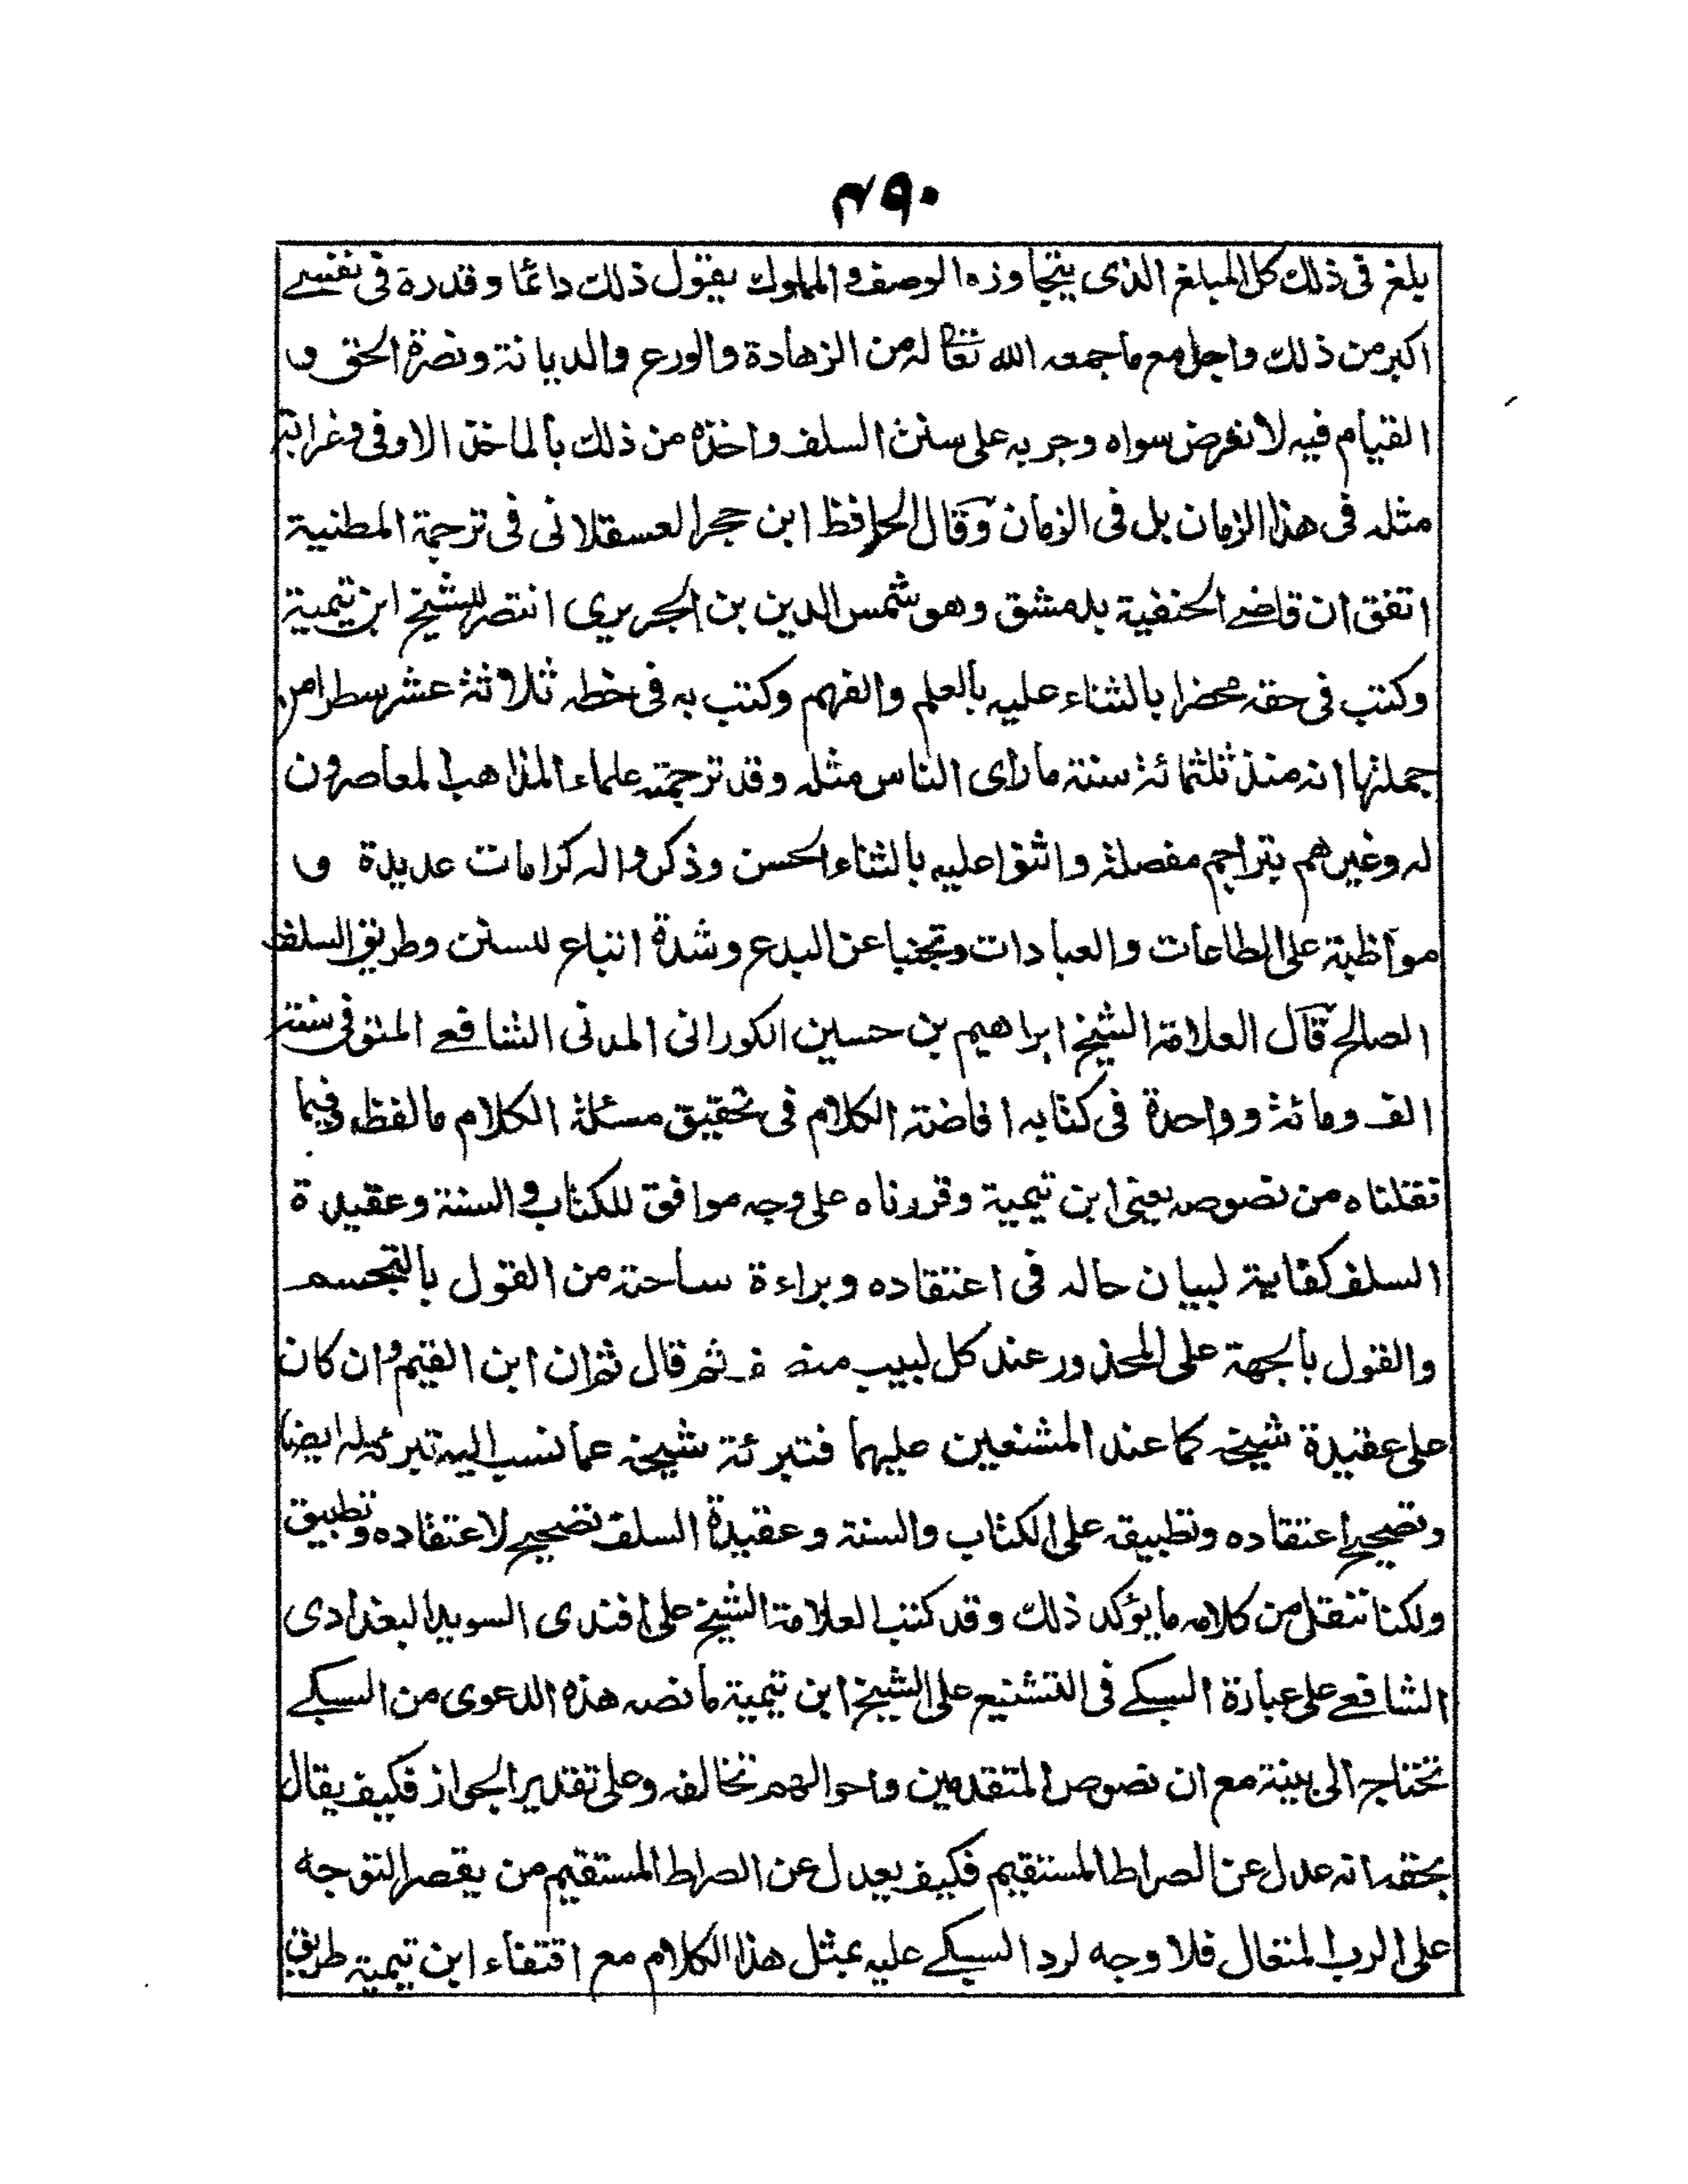 ٤٩٠
يلغ فى ذلك كل المبلغ الذى يتجاوزه الوصف والمملوك يقول ذلك دائما وقدره فى نفسے
اكبر من ذلك واجل مع ما جمعه الله تعالى له من الزهادة والورع والديانة ونصرة الحق و
القيام فيه لا لغرض سواه وجريه على سنن السلف واخذه من ذلك بالماخذ الاوفى وغرابة
مثله فى هذا الزمان بل فى الزمان وقال الحافظ ابن حجر العسقلانى فى ترجمة المطنبة
اتفق ان قاضے الحنفية بدمشق وهو شمس الدين بن الجريرى انتصر للشيخ ابن تيمية
وكتب فى حقه محضرا بالثناء عليه بالعلم والفهم وكتب به فى خطه ثلاثة عشر سطرا من
جملتها انه منذ ثلثمائة سنة ما راى الناس مثله وقد ترجمته علماء المذاهب المعاصرون
له وغيرهم بتراجم مفصلة واثنوا عليه بالثناء الحسن وذكروا له كرامات عديدة و
مواظبة على الطاعات والعبادات وتجنبا عن البدع وشدة اتباع للسنن وطريق السلف
الصالح قال العلامة الشيخ ابراهيم بن حسين الكورانى المدنى الشافعے المتوفى سنة
الف ومائة وواحدة فى كتابه افاضة الكلام فى تحقيق مسئلة الكلام مالفظه وفيما
نقلناه من نصوصه يعنى ابن تيمية وقررناه على وجه موافق للكتاب والسنة وعقيدة
السلف كفاية لبيان حاله فى اعتقاده وبراءة ساحته من القول بالتجسم
والقول بالجهة على المحذور عند كل لبيب منصف ثم قال ثم ان ابن القيم وان كان
على عقيدة شيخه كما عند المشنعين عليهما فتبرئة شيخه عما نسب اليه تبرئة له ايضا
وتصحيح اعتقاده وتطبيقه على الكتاب والسنة وعقيدة السلف تصحيح لاعتقاده وتطبيق
ولكنا ننقل من كلامه ما يؤكد ذلك وقد كتب العلامة الشيخ على افندى السويدا البغدادى
الشافعے على عبارة السبكے فى التشنيع على الشيخ ابن تيمية ما نصه هذه الدعوى من السبكے
تحتاج الى بينة مع ان نصوص المتقدمين واحوالهم تخالفه وعلى تقدير الجواز فكيف يقال
بحقه انه عدل عن الصراط المستقيم فكيف يعدل عن الصراط المستقيم من يقصر التوجه
على الرب المتعال فلا وجه لرد السبكے عليه بمثل هذا الكلام مع اقتفاء ابن تيمية طريق